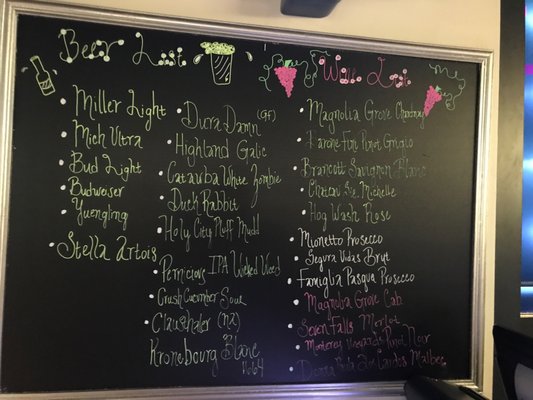 Beer List
Miller Light
Mich Ultra
Bud Light
Budweiser
Yuengling
Stella Artois
Dura Damn (GF)
Highland Gaelic
Catawba White Zombie
Duck Rabbit
Holy City Pluff Mudd
Pernicious IPA Wicked Weed
Crush Cucumber Sour
Clausthaler (NA)
Kronebourg Blanc
1664
Wine List
Magnolia Grove Chardonnay
Barone Fini Pinot Grigio
Brancott Savignon Blanc
Chateau Ste. Michelle
Hog Wash Rose
Mionetto Prosecco
Segura Vidas Brut
Famiglia Pasqua Prosecco
Magnolia Grove Cab
Seven Falls Merlot
Monterey Vineyards Pinot Noir
Malbec